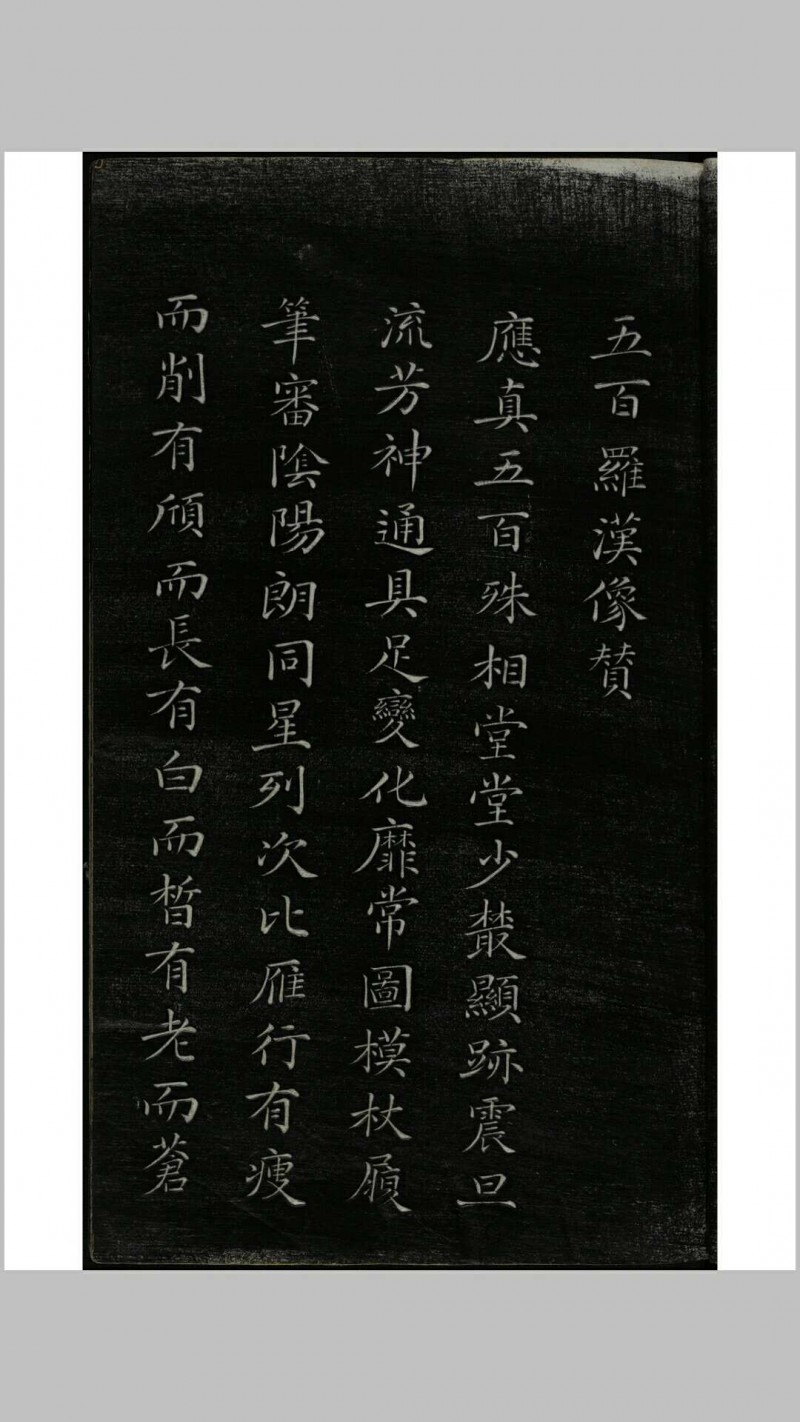 五百羅漢像贊
應真五百殊相堂堂少叢顯跡震旦
流芳神通具足變化靡常圖模杖屨
筆審陰陽朗同星列次比雁行有瘦
而削有頎而長有白而皙有老而蒼